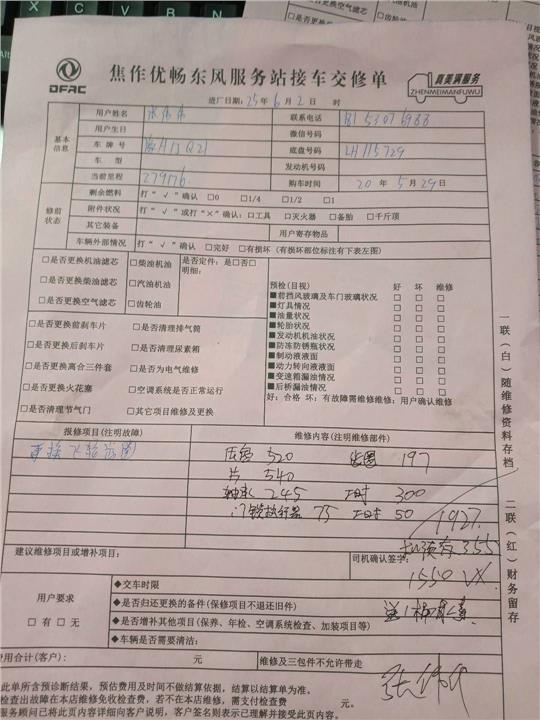 DFAC
焦作优畅东风服务站接车交修单
真美满服务
ZHENMEIMANFUWU
进厂日期：25年6月2日 时
基本信息
用户姓名 联系电话
用户生日 微信号码
车牌号 底盘号码 LH115729
车型 发动机号码
当前里程 279176 购车时间 20年5月29日
修前状态
剩余燃料 打“√”确认 □0 □1/4 □1/2 □1
附件状况 打“√”或打“×”确认：□工具 □灭火器 □备胎 □千斤顶
其它装备 用户寄存物品
车辆外部情况 打“√”确认 □完好 □有损坏（有损坏部位标注有下表左图）
□是否更换机油滤芯 □柴油机油 是否定件：是□否□
明细：
□是否更换柴油滤芯 □汽油机油
□是否更换空气滤芯 □齿轮油
□是否更换前刹车片 □是否清理排气筒
□是否更换后刹车片 □是否清理尿素箱
□是否更换离合三件套 □是否为电气维修
□是否更换火花塞 □空调系统是否正常运行
□是否清理节气门 □其它项目维修及更换
预检（目视） 好 坏 维修
■前挡风玻璃及车门玻璃状况 □ □ □
■灯具情况 □ □ □
■油量状况 □ □ □
■轮胎状况 □ □ □
■发动机机油状况 □ □ □
■防冻防锈瓶状况 □ □ □
■制动液液面 □ □ □
■动力转向液液面 □ □ □
■变速箱漏油情况 □ □ □
■后桥漏油情况 □ □ □
好：合格 坏：有故障需维修维修：用户确认维修
报修项目（注明故障） 维修内容（注明维修部件）
更换飞轮齿圈 压盘 520 齿圈 197
片 540
轴承 245 工时 300
门锁执行器 75 工时 50
1927.
355
建议维修项目或增补项目： 司机确认签字：
1550 VX
用户要求
□有 □无
◆交车时限
◆是否归还更换的备件（保修项目不退还旧件）
◆是否增补其他项目（保养、年检、空调系统检查、加装项目等）
◆车辆是否需要清洁：
费用合计（客户）： 元 维修及三包件不允许带走
此单所含预诊断结果，预估费用及时间不做结算依据，结算以结算单为准。
检查出故障在本店维修免收检查费，若不在本店维修，需支付检查费 元。
服务顾问已将此页内容详细向客户说明，客户签名则表示已理解并接受此页内容。
一联（白）随维修资料存档
二联（红）财务留存